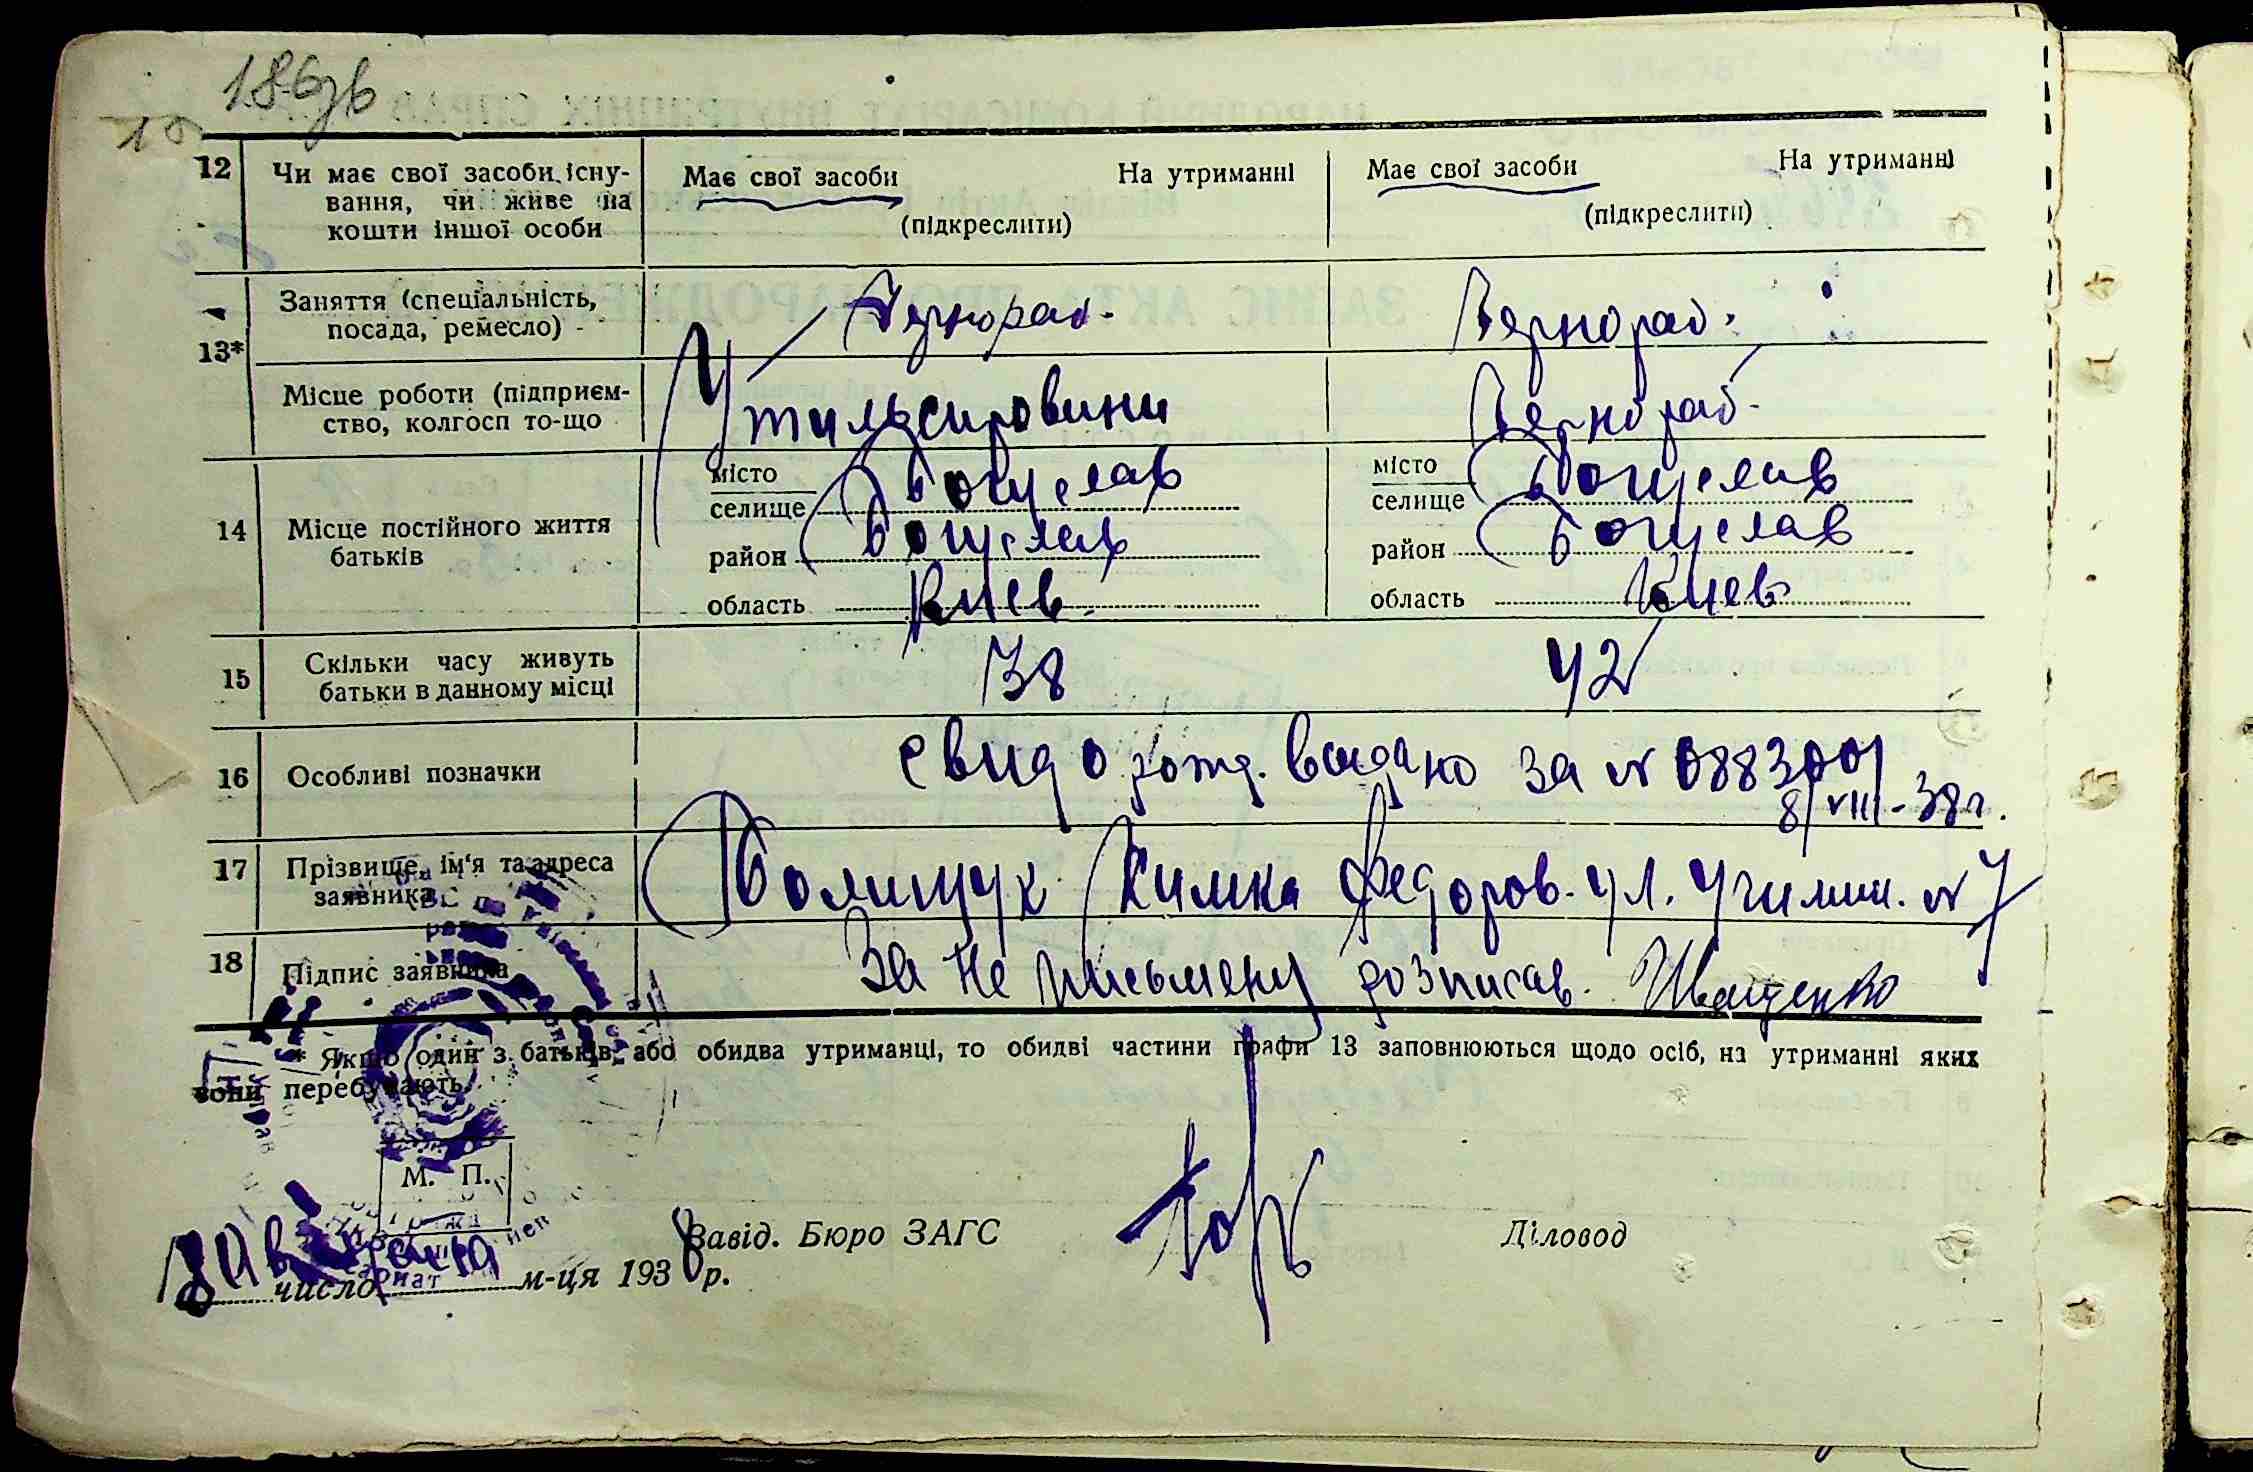 186зв
12 Чи має свої засоби існу- Має свої засоби На утриманні Має свої засоби На утриманні
вання, чи живе на (підкреслити) (підкреслити)
кошти іншої особи
13* Заняття (спеціальність, Чернораб. Чернораб.
посада, ремесло)
Місце роботи (підприєм- Утильсировини Чернораб.
ство, колгосп то-що
14 Місце постійного життя батьків
місто селище Богуслав місто селище Богуслав
район Богуслав район Богуслав
область Киев. область Киев
15 Скільки часу живуть 38 42
батьки в данному місці
16 Особливі позначки свид о рожд. выдано за № 0883001
8/VIII-38 г.
17 Прізвище, ім'я та адреса Полищук Химка Федоров. ул. Училищ. № 7
заявника
18 Підпис заявника За не письмену розписав. Иващенко
* Якщо один з батьків, або обидва утриманці, то обидві частини графи 13 заповнюються щодо осіб, на утриманні яких
вони перебувають.
М. П.
Завід. Бюро ЗАГС Діловод
8 августа
число м-ця 1938 р.